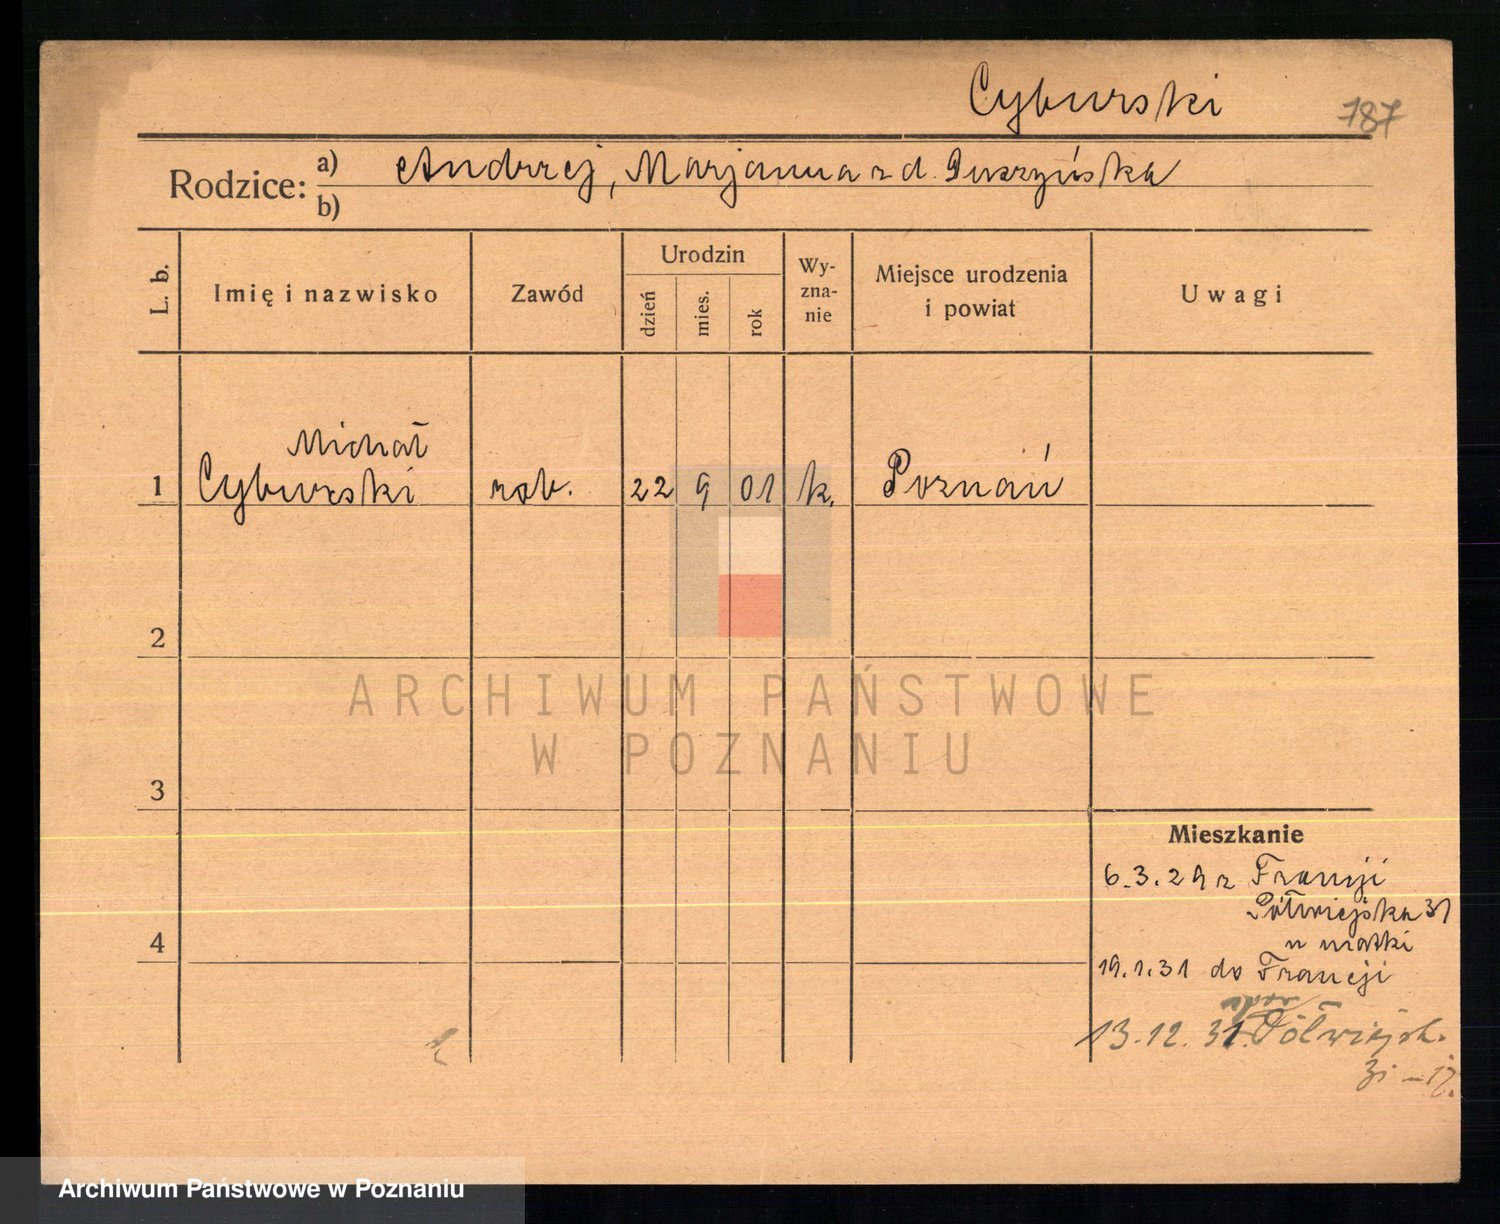 Cyburski
187
Rodzice: a) Andrzej, Marjanna z d. Puszyńska
b)
L. b.
Imię i nazwisko
Zawód
Urodzin
dzień
mies.
rok
Wy-
zna-
nie
Miejsce urodzenia
i powiat
Uwagi
Michał
1 Cyburski rob. 22 9 01 k. Poznań
2
ARCHIWUM PAŃSTWOWE
W POZNANIU
3
Mieszkanie
6.3.29 z Francji
Półwiejska 31
u matki
4
19.1.31 do Francji
13.12.31. Półwiejsk.
31
Archiwum Państwowe w Poznaniu